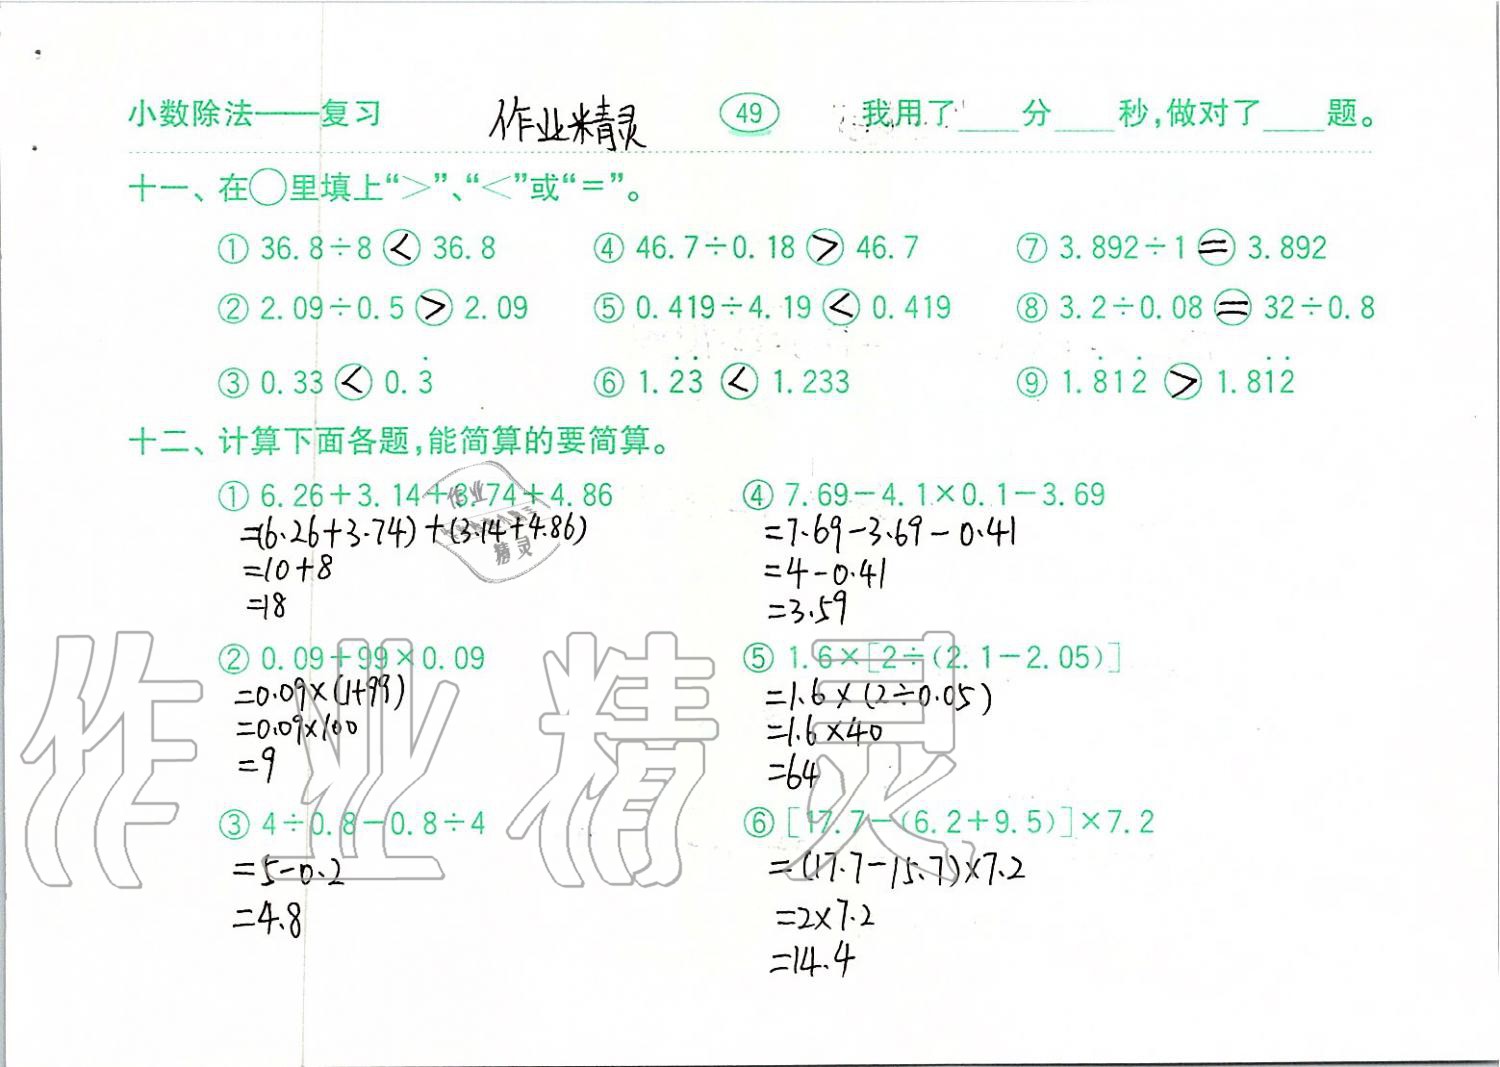 小数除法——复习 作业精灵 49 我用了____分____秒,做对了____题。
十一、在○里填上“>”、“<”或“=”。
① 36.8÷8 < 36.8 ④ 46.7÷0.18 > 46.7 ⑦ 3.892÷1 = 3.892
② 2.09÷0.5 > 2.09 ⑤ 0.419÷4.19 < 0.419 ⑧ 3.2÷0.08 = 32÷0.8
③ 0.33 < 0.3̇ ⑥ 1.2̇3̇ < 1.233 ⑨ 1.8̇12̇ > 1.81̇2̇
十二、计算下面各题,能简算的要简算。
① 6.26+3.14+3.74+4.86
=(6.26+3.74)+(3.14+4.86)
=10+8
=18
④ 7.69-4.1×0.1-3.69
=7.69-3.69-0.41
=4-0.41
=3.59
② 0.09+99×0.09
=0.09×(1+99)
=0.09×100
=9
⑤ 1.6×[2÷(2.1-2.05)]
=1.6×(2÷0.05)
=1.6×40
=64
③ 4÷0.8-0.8÷4
=5-0.2
=4.8
⑥ [17.7-(6.2+9.5)]×7.2
=(17.7-15.7)×7.2
=2×7.2
=14.4
作业精灵
作业
精灵